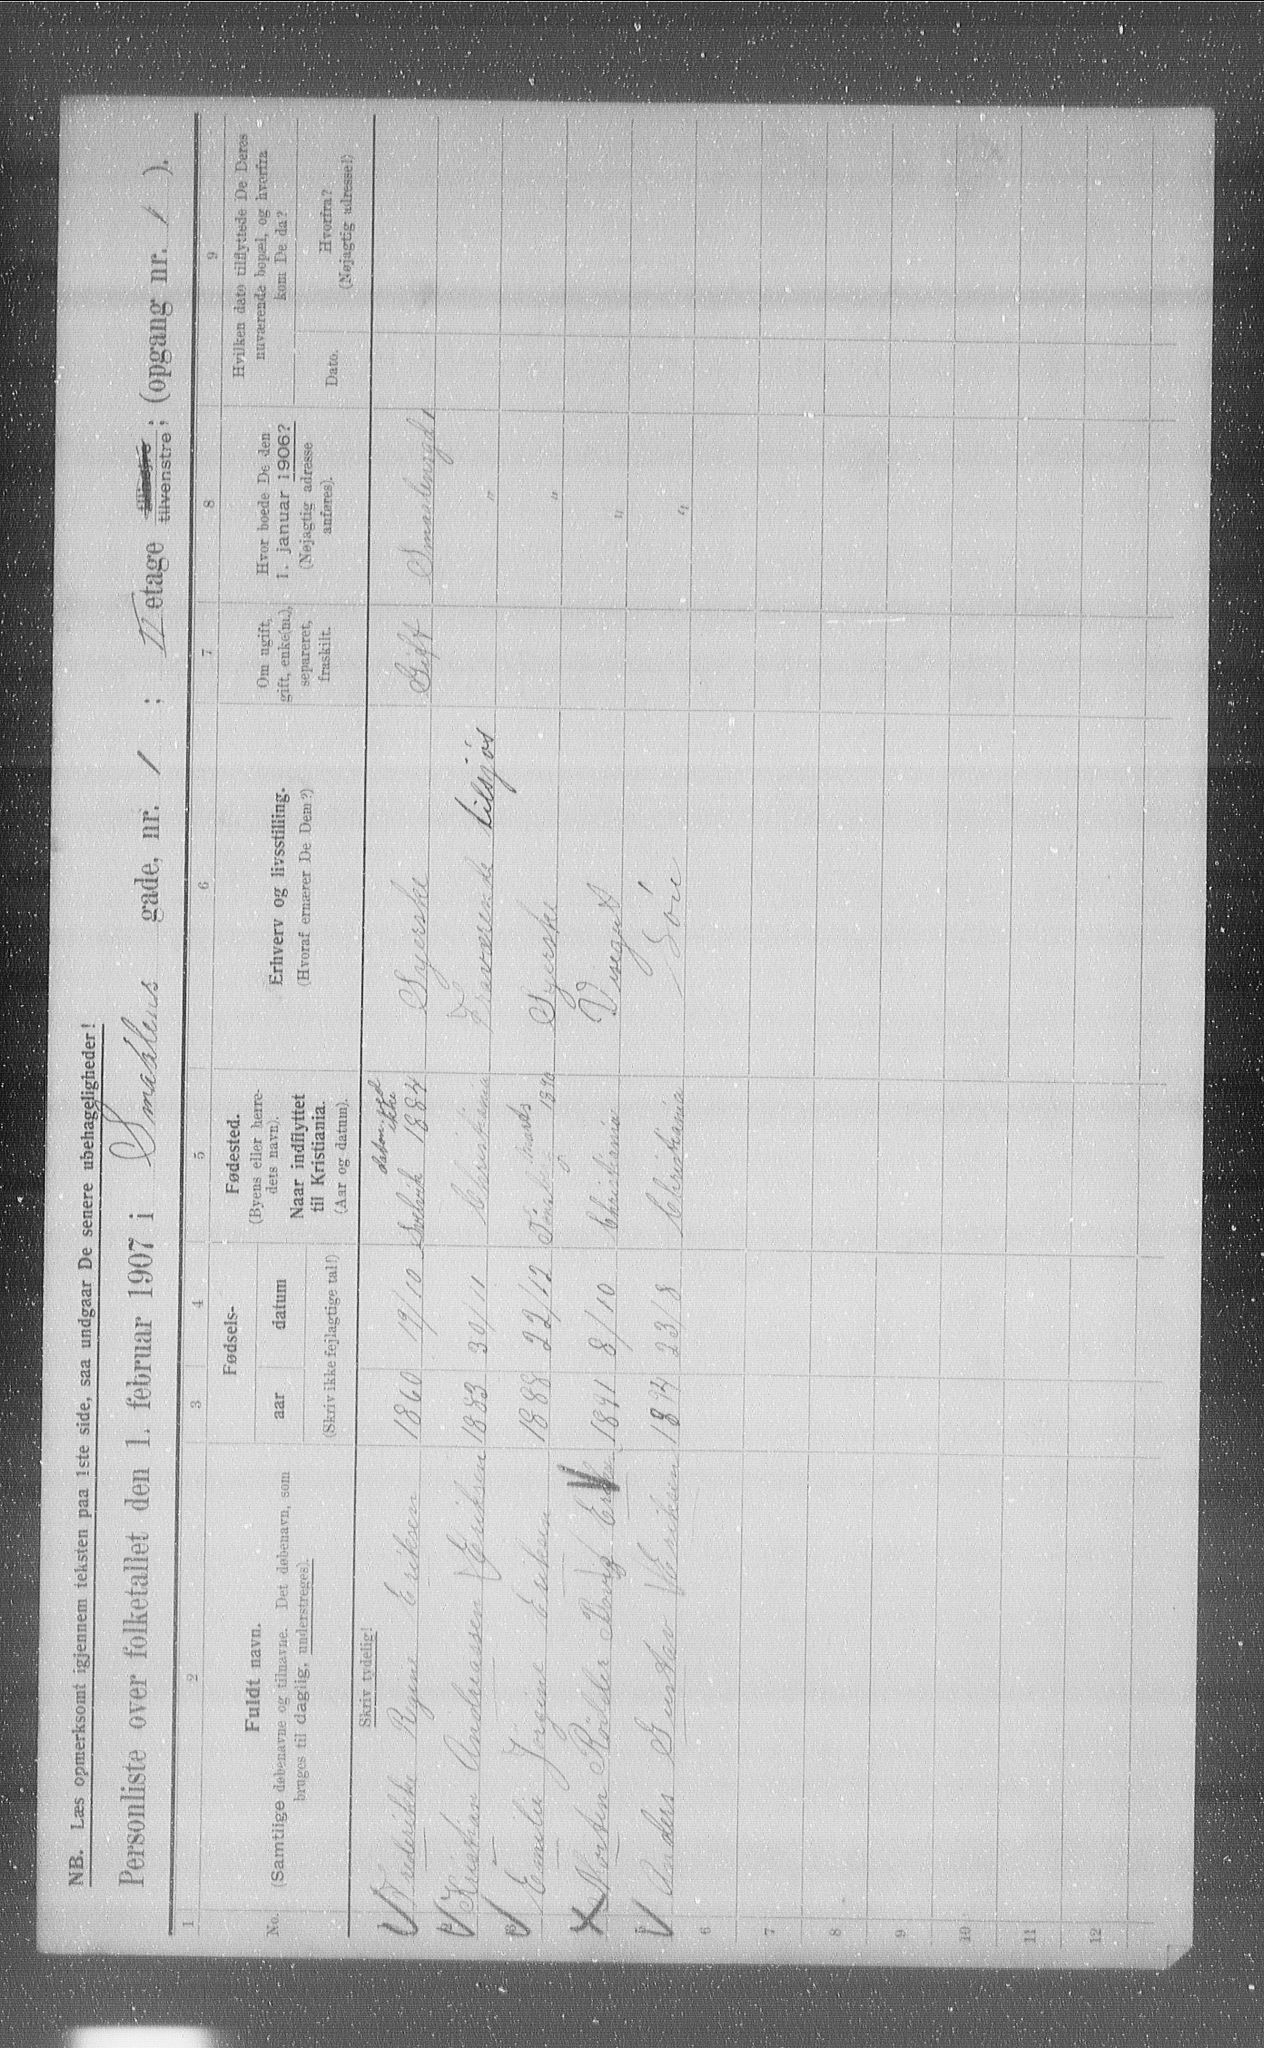 NB. Læs opmerksomt igjennem teksten paa 1ste side, saa undgaar De senere ubehageligheder!
Personliste over folketallet den 1. februar 1907 i Smaalens gade, nr. 1 ; II etage tilvenstre; (opgang nr. 1 ).
1 2 3 4 5 6 7 8 9
No.
Fuldt navn.
(Samtlige døbenavne og tilnavne. Det døbenavn, som
bruges til daglig, understreges).
Fødsels-
aar datum
(Skriv ikke fejlagtige tal!)
Fødested.
(Byens eller herre-
dets navn).
Naar indflyttet
til Kristiania.
(Aar og datum).
Erhverv og livsstilling.
(Hvoraf ernærer De Dem?)
Om ugift,
gift, enke(m.),
separeret,
fraskilt.
Hvor boede De den
1. januar 1906?
(Nøjagtig adresse
anføres).
Hvilken dato tilflyttede De Deres
nuværende bopæl, og hvorfra
kom De da?
Dato.
Hvorfra?
(Nøjagtig adresse!)
Skriv tydelig!
ikke
1 Frederikke Regine Eriksen 1860 19/10 Svelvik 1884 Syerske Gift Smaalensgd 1
2 Kristian Andreassen Eriksen 1883 30/11 Christiania Fraværende tilsjøs "
3 Emilie Jørgine Eriksen 1888 22/12 1890 Syerske "
Morten Rödder 1891 8/10 Christiania Visegut "
5 Anders Gustav Eriksen 23/8 Christiania "
6
7
8
9
10
11
12